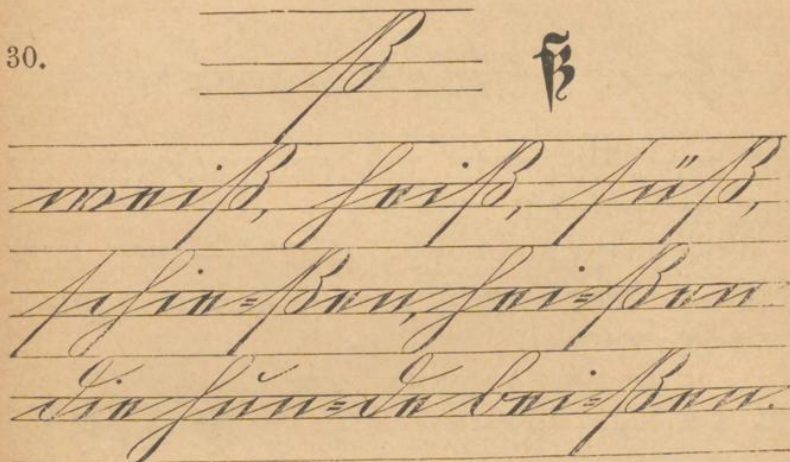 30. ß ß
weiß, heiß, süß,
schie=ßen, hei=ßen
die hun=de bei=ßen.